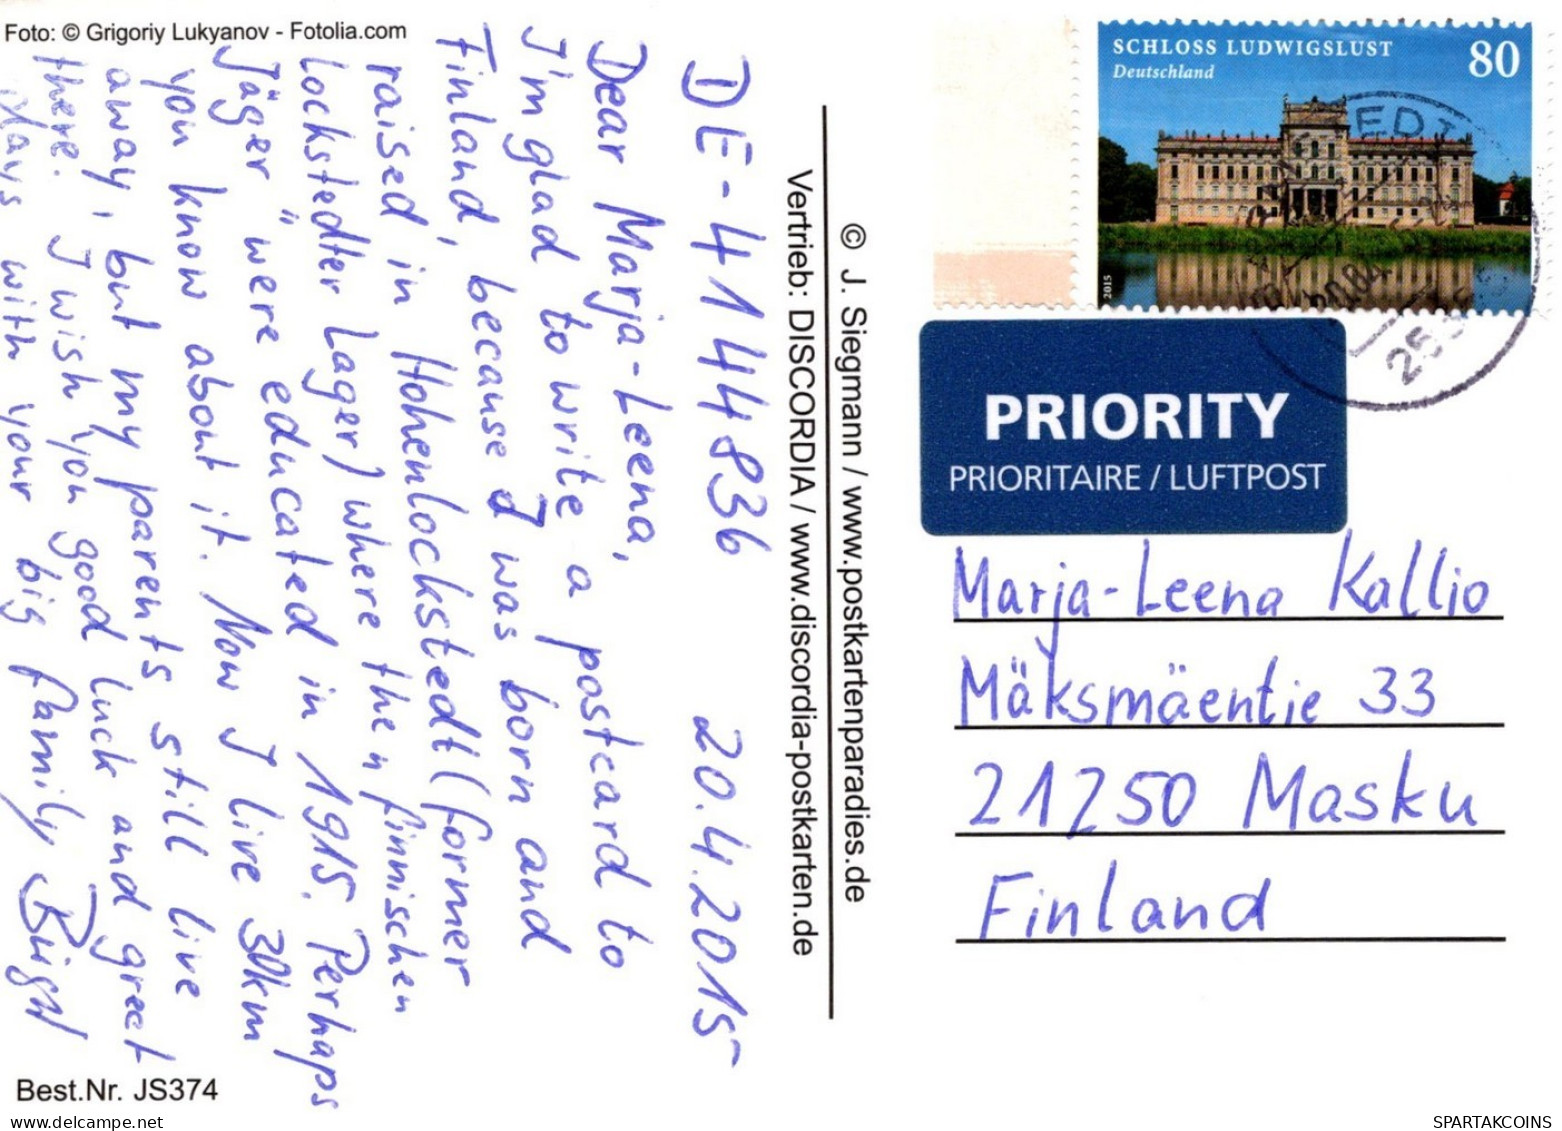 Foto: © Grigoriy Lukyanov - Fotolia.com
DE-4144836 20.4.2015
Dear Marja-Leena,
I'm glad to write a postcard to
Finland, because I was born and
raised in Hohenlockstedt (former
Lockstedter Lager) where the „finnischen
Jäger" were educated in 1915. Perhaps
you know about it. Now I live 30km
away, but my parents still live
there. I wish you good luck and great
days with your big family
Best.Nr. JS374
Vertrieb: DISCORDIA / www.discordia-postkarten.de
© J. Siegmann / www.postkartenparadies.de
SCHLOSS LUDWIGSLUST
Deutschland
80
2015
PRIORITY
PRIORITAIRE / LUFTPOST
Marja-Leena Kallio
Mäksmäentie 33
21250 Masku
Finland
SPARTAKCOINS